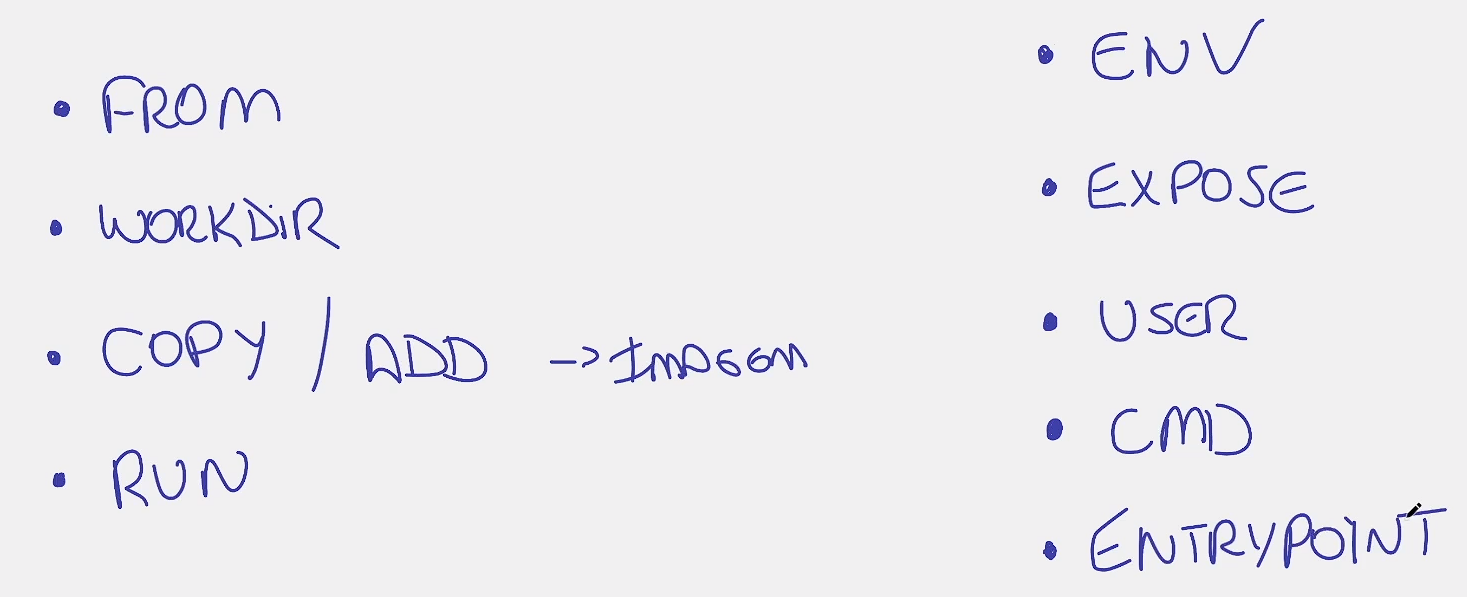 • FROM
• WORKDIR
• COPY / ADD -> IMAGEM
• RUN
• ENV
• EXPOSE
• USER
• CMD
• ENTRYPOINT